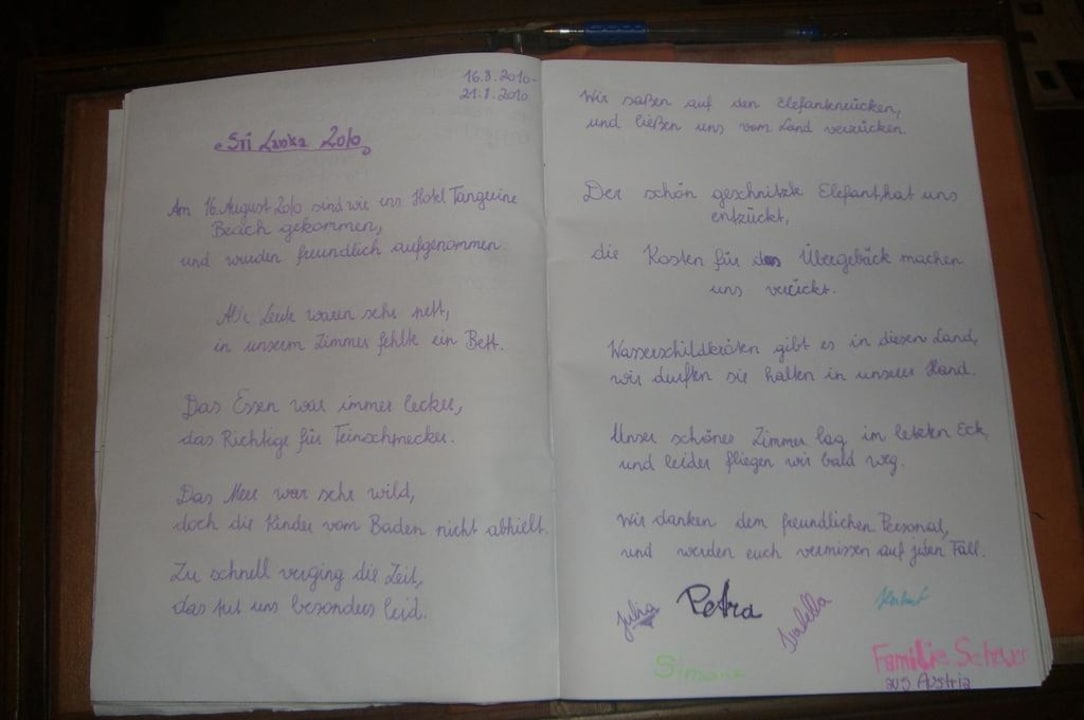 16.8.2010-
21.8.2010
Sri Lanka 2010
Am 16. August 2010 sind wir ins Hotel Tangerine
Beach gekommen,
und wurden freundlich aufgenommen.
Alle Leute waren sehr nett,
in unserm Zimmer fehlte ein Bett.
Das Essen war immer lecker,
das Richtige für Feinschmecker.
Das Meer war sehr wild,
doch die Kinder vom Baden nicht abhielt.
Zu schnell verging die Zeit,
das tut uns besonders leid.
Wir saßen auf den Elefantenrücken,
und ließen uns vom Land verzücken.
Der schön geschnitzte Elefant hat uns
entzückt,
die Kosten für das Übergebäck machen
uns verückt.
Wasserschildkröten gibt es in diesem Land,
wir durften sie halten in unserer Hand.
Unser schönes Zimmer lag im letzten Eck,
und leider fliegen wir bald weg.
Wir danken dem freundlichen Personal,
und werden euch vermissen auf jeden Fall.
Julia Petra Isabella
Simone
Familie
aus Austria